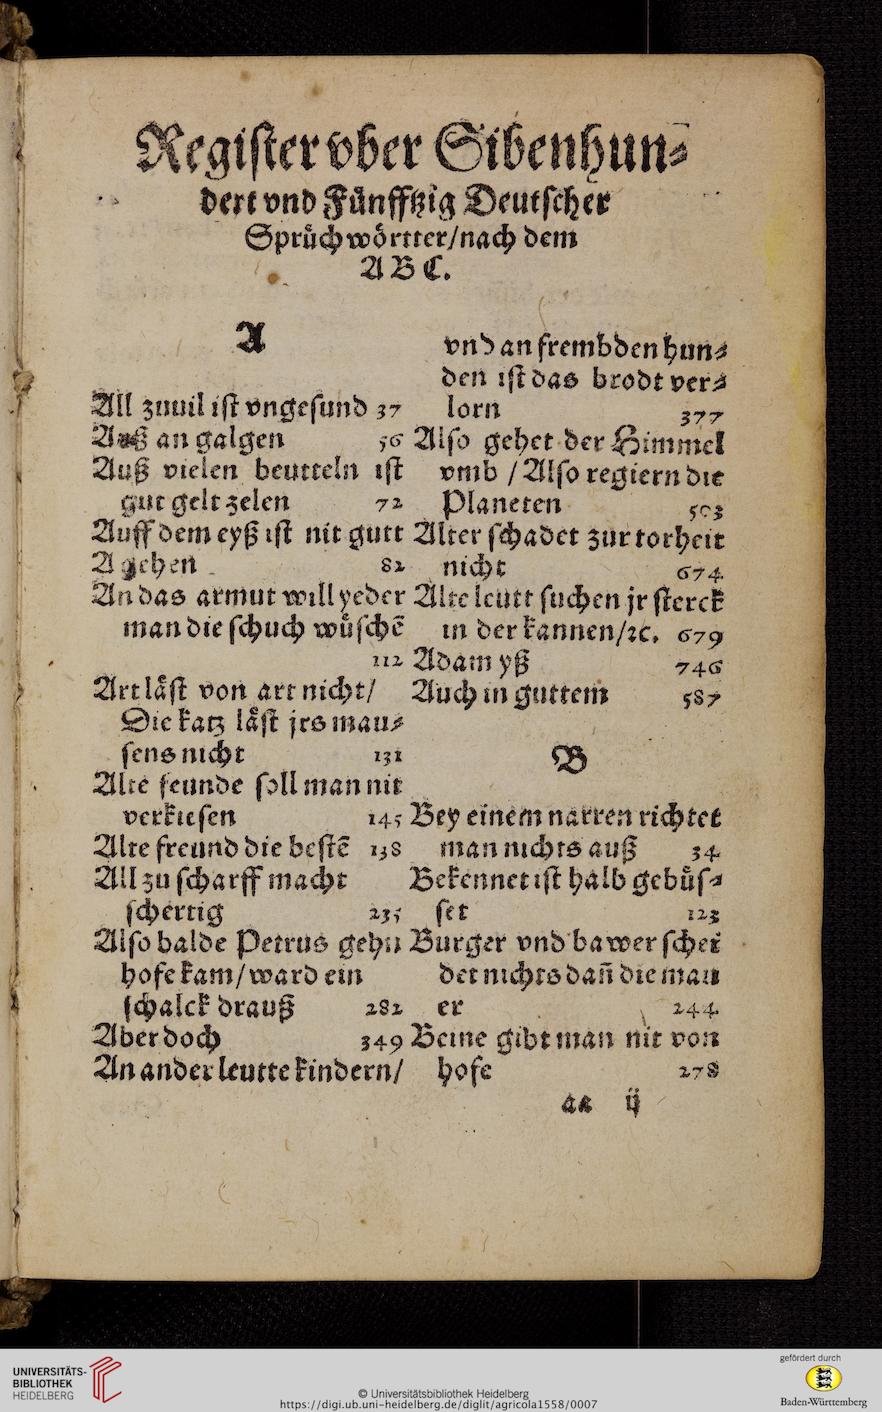 Register vber Sibenhun⸗
dert vnd Fünfftzig Deutscher
Sprüchwörtter/nach dem
A B C.
A
All zuuil ist vngesund 37
Auß an galgen 56
Auß vielen beutteln ist
gut gelt zelen 72
Auff dem eyß ist nit gutt
gehen 82
An das armut will yeder
man die schuch wüschē
112
Art läst von art nicht/
Die katz läst jrs mau⸗
sens nicht 131
Alte feunde soll man nit
verkiesen 145
Alte freund die bestē 138
All zu scharff macht
schertig 235
Also balde Petrus gehn
hofe kam/ward ein
schalck drauß 282
Aber doch 349
An ander leutte kindern/
vnd an frembden hun⸗
den ist das brodt ver⸗
lorn 377
Also gehet der Himmel
vmb /Also regiern die
Planeten 503
Alter schadet zur torheit
nicht 674
Alte leutt suchen jr sterck
in der kannen/ꝛc. 679
Adam yß 746
Auch in guttem 587
B
Bey einem narren richtet
man nichts auß 34
Bekennet ist halb gebüs⸗
set 123
Burger vnd bawer schei
det nichts dañ die mau
er 244
Beine gibt man nit von
hofe 278
aa ij
UNIVERSITÄTS-
BIBLIOTHEK
HEIDELBERG
© Universitätsbibliothek Heidelberg
https://digi.ub.uni-heidelberg.de/diglit/agricola1558/0007
gefördert durch
Baden-Württemberg